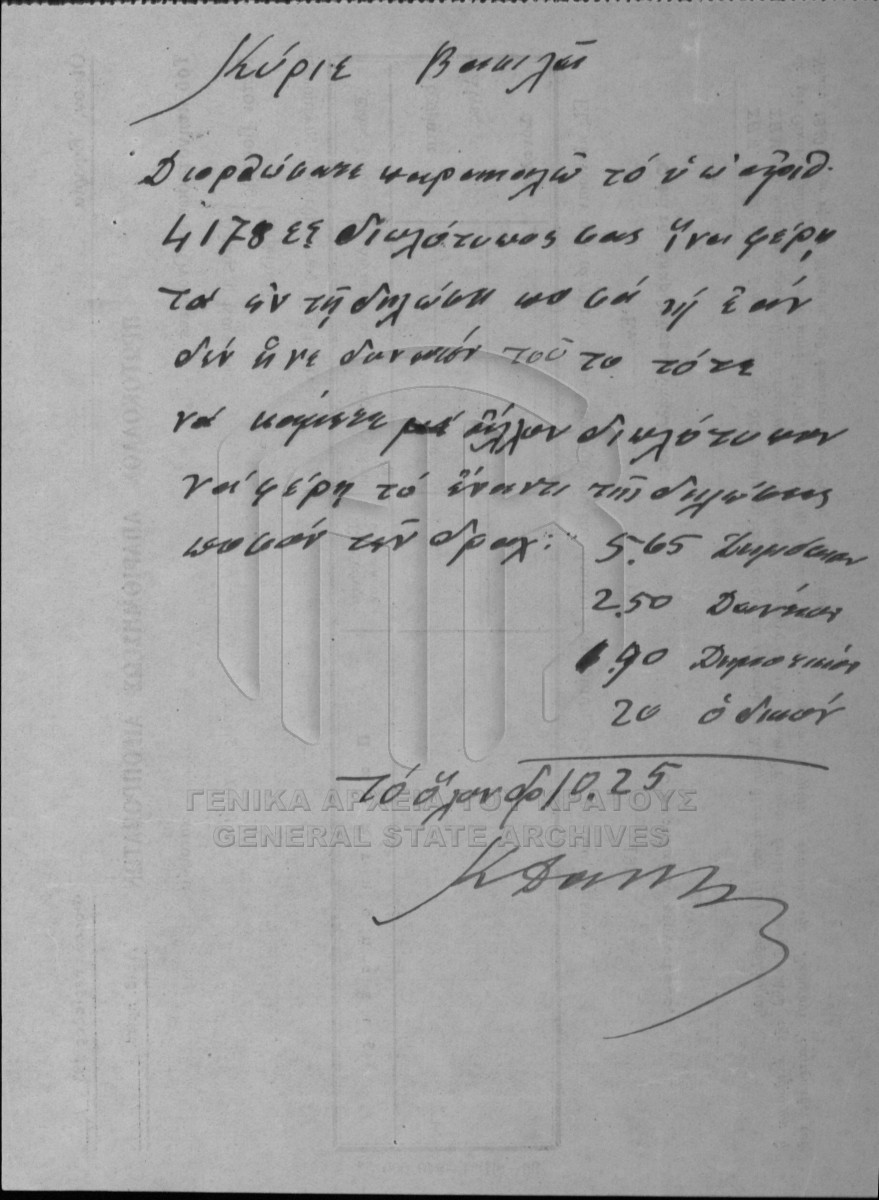 Κύριε Βασιλᾶ
Διορθώσατε παρακαλῶ τό ὑπ' ἀριθ.
4178 ἐξ διπλότυπος σας ἵνα φέρῃ
τά ἐν τῇ δηλώσει ποσά ἤ ἐάν
δέν εἶνε δυνατόν τοῦτο τότε
νά κάμετε ἄλλον διπλότυπον
νά φέρῃ τό ἔναντι τῆς δηλώσεως
ποσόν τῶν δραχ: 5.65 Δημόσιον
2.50
1.90 Δημοτικόν
20 ὁδικόν
τό ὅλον δρ 10.25
ΓΕΝΙΚΑ ΑΡΧΕΙΑ ΤΟΥ ΚΡΑΤΟΥΣ
GENERAL STATE ARCHIVES